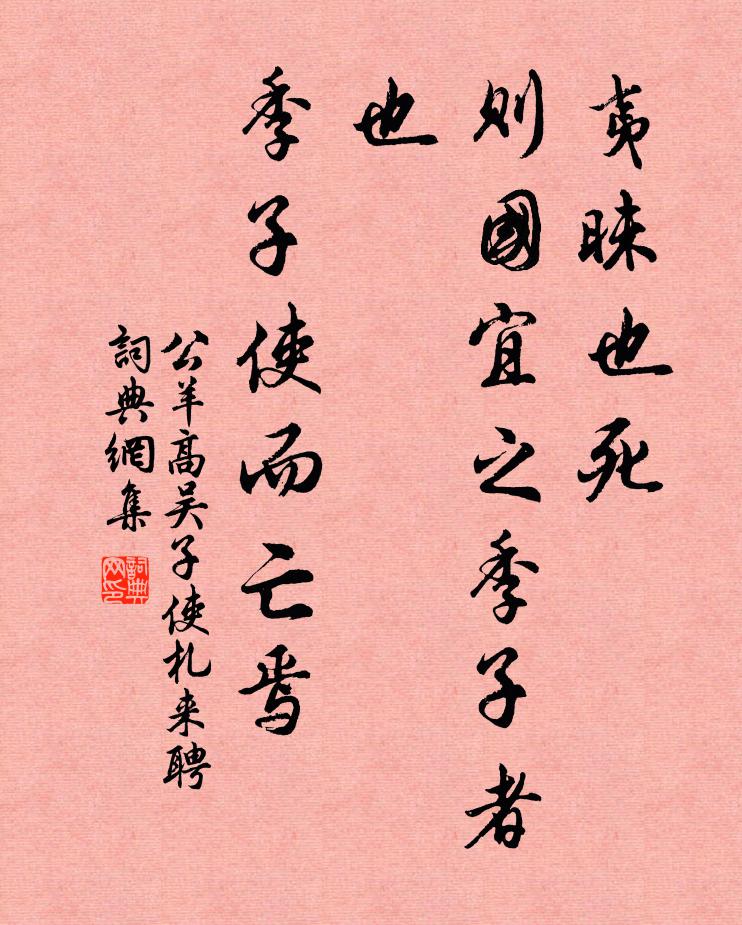 夷昧也死
則國宜之季子者
也
季子使而亡焉
公羊高吴子使札来聘
詞典網集
詞典网印